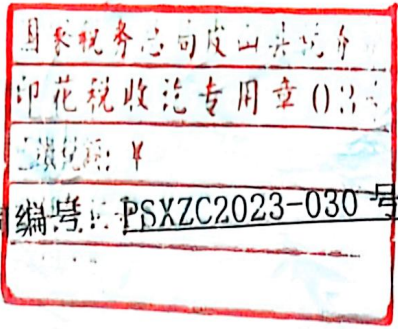 国家税务总局皮山县税务
印花税收讫专用章(03
已缴税额:¥
编号: PSXZC2023-030 号